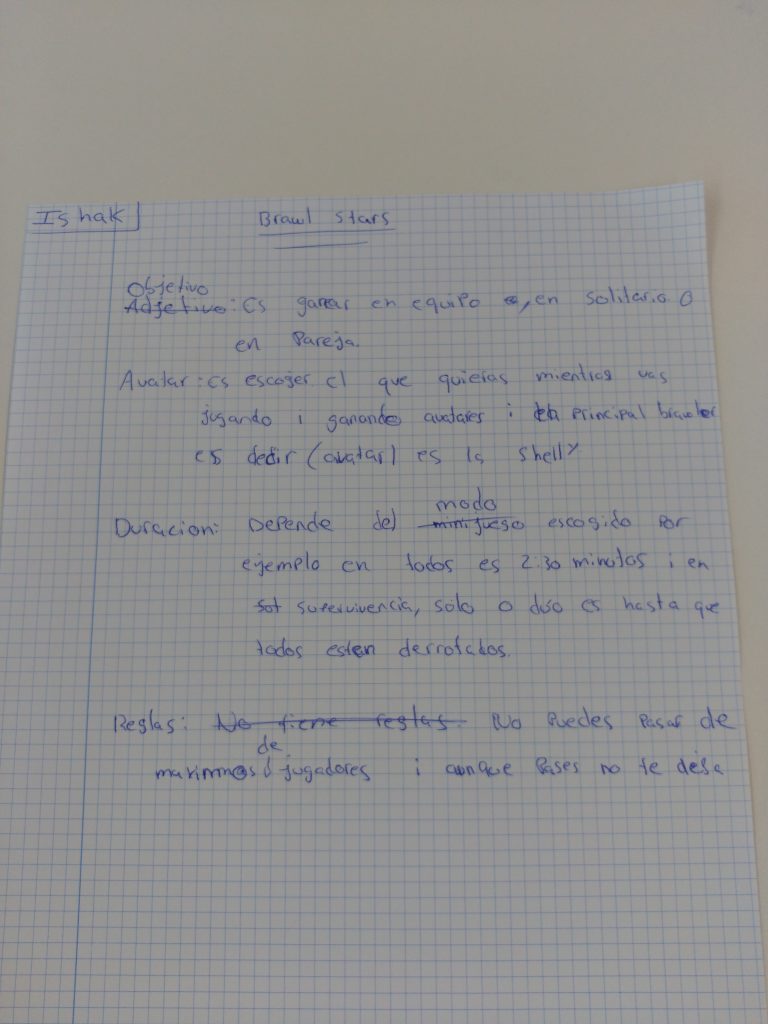 Ishak
Brawl Stars
Objetivo
Adjetivo: Es ganar en equipo o, en solitario o
en Pareja.
Avatar: es escojer el que quieras mientras vas
jugando i ganando avatares i principal brawler
es decir (avatar) es la shelly
modo
Duracion: Depende del minijuego escogido Por
ejemplo en todos es 2:30 minutos i en
sot supervivencia, solo o duo es hasta que
todos esten derrotados.
Reglas: No tiene reglas. No Puedes Pasar de
de
maximos jugadores i aunque Pases no te desa